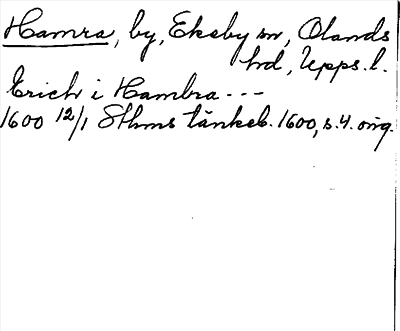 Hamra, by, Eksby sn, Olands
hd, Upps. l.
Erich i Hambra ---
1600 12/1 Sthms tänkeb. 1600, s. 4. orig.